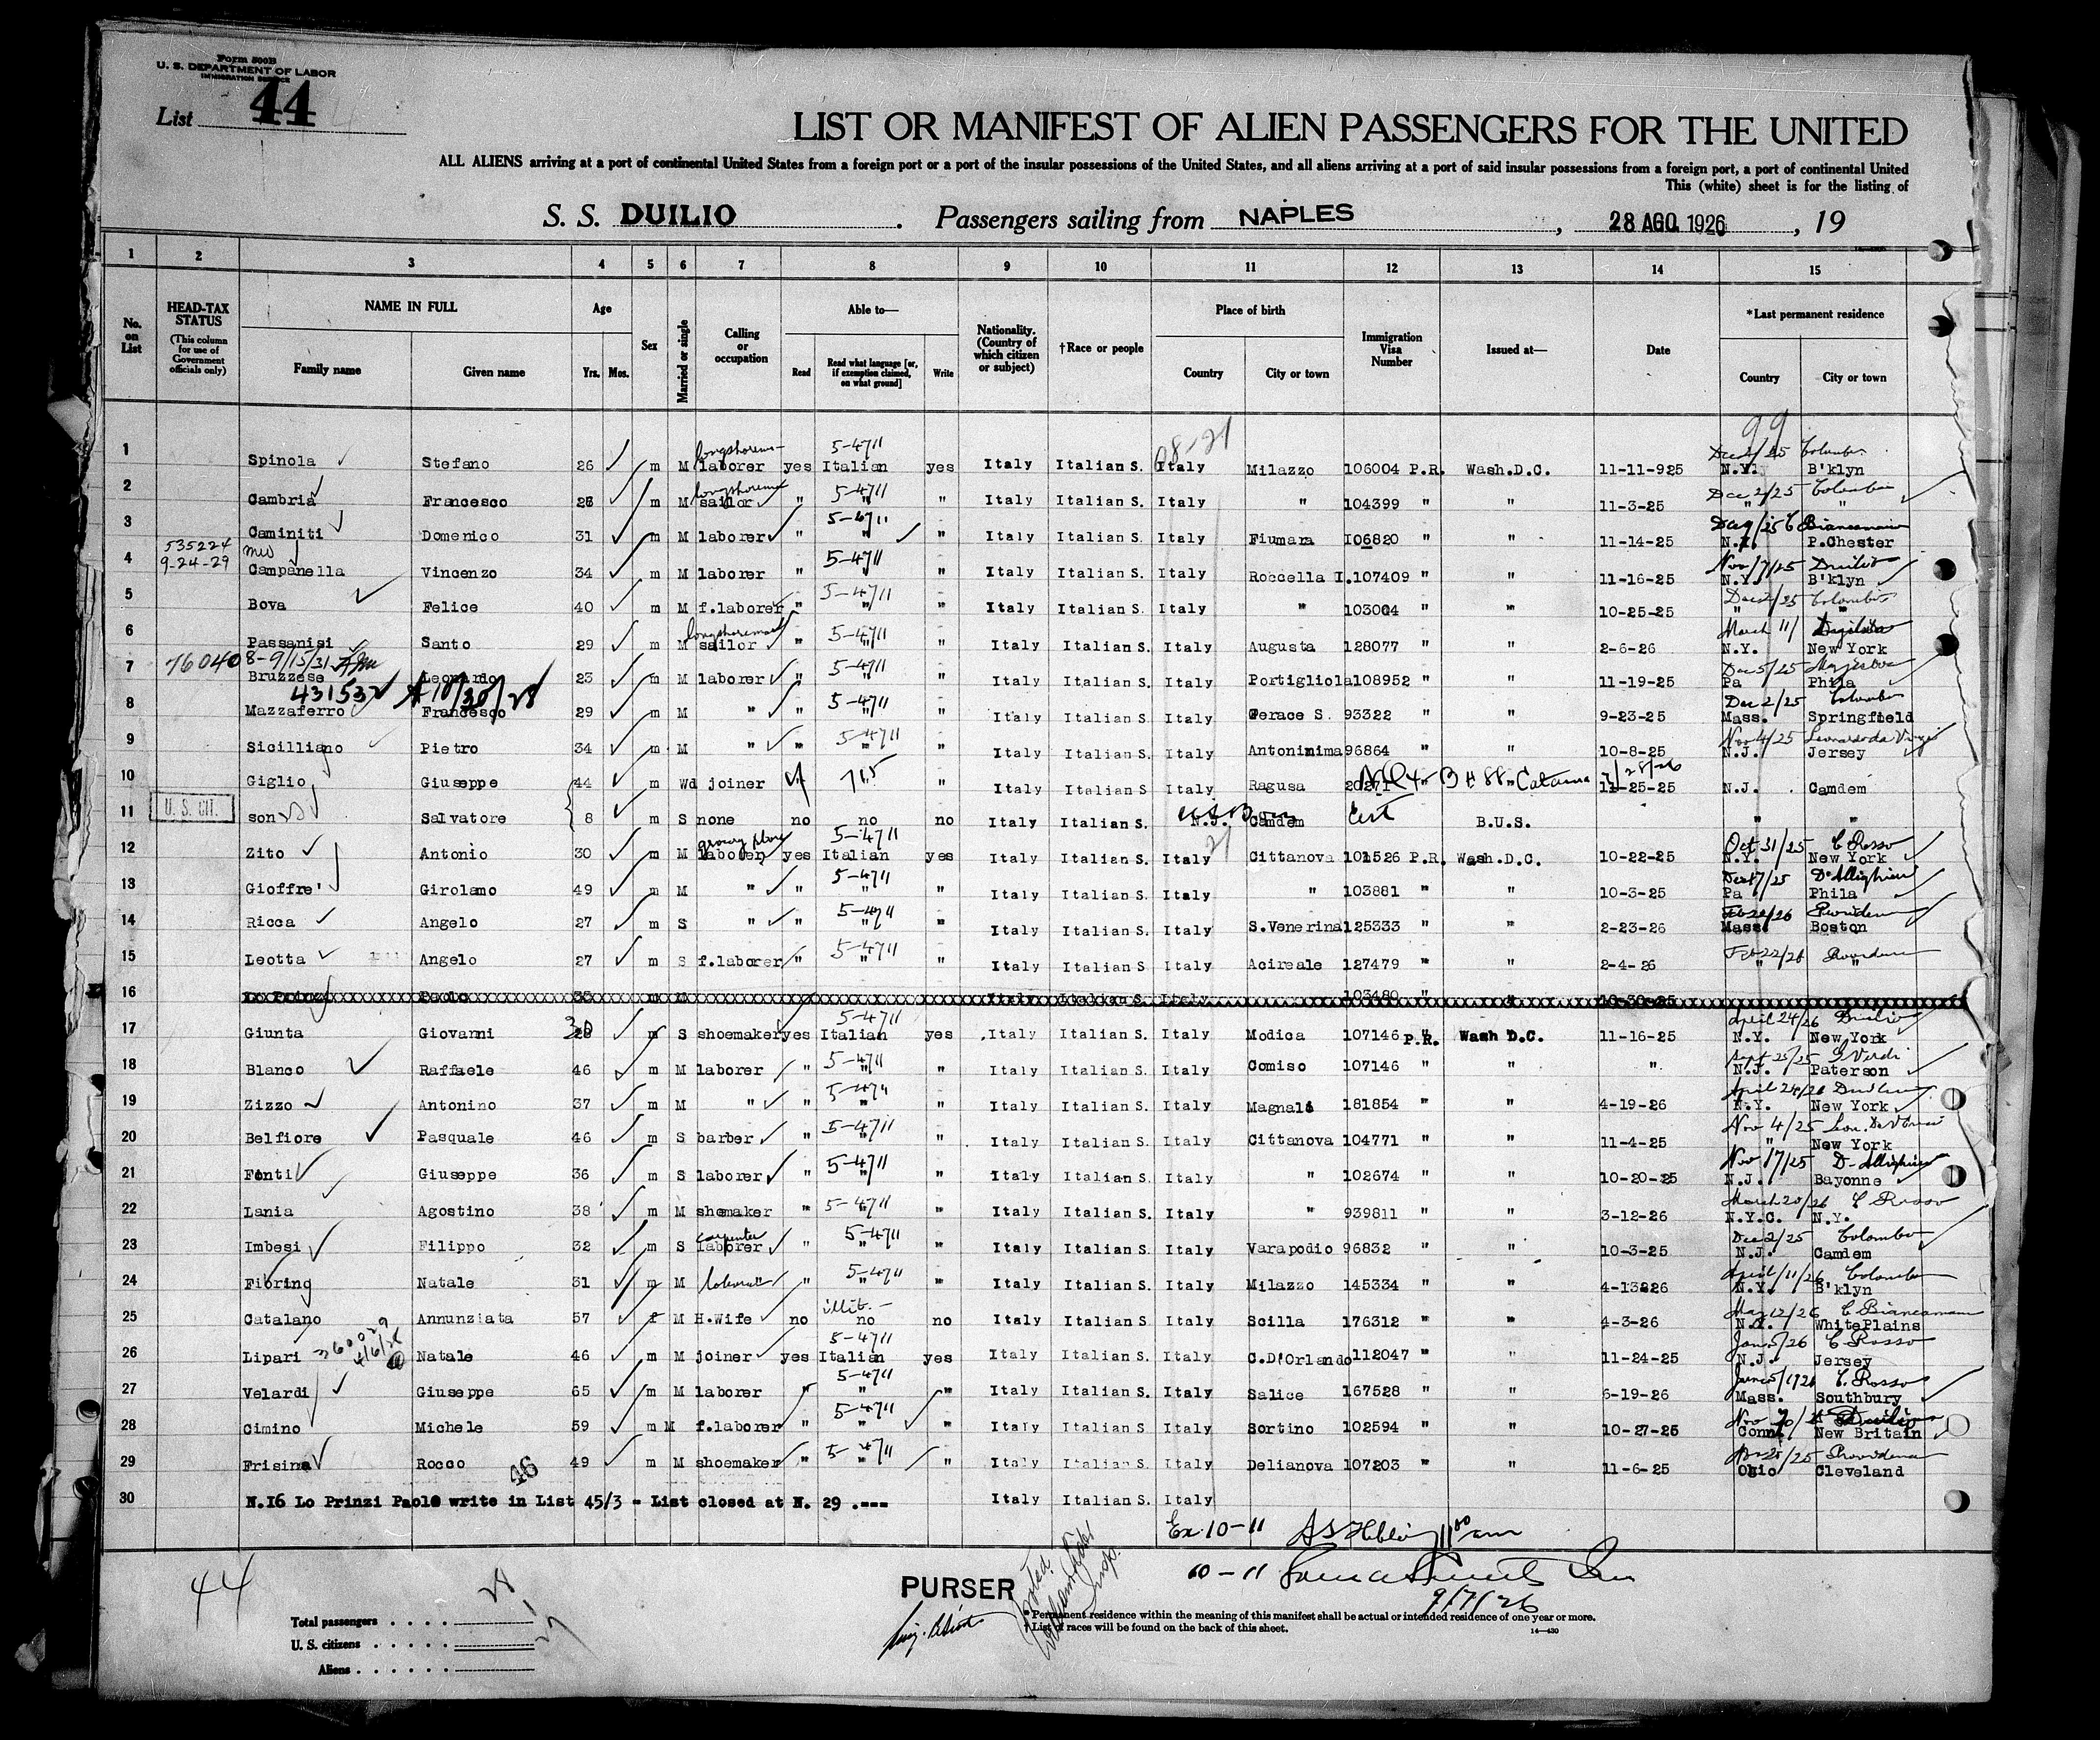 Form 500B
U. S. DEPARTMENT OF LABOR
IMMIGRATION SERVICE
List 44
LIST OR MANIFEST OF ALIEN PASSENGERS FOR THE UNITED
ALL ALIENS arriving at a port of continental United States from a foreign port or a port of the insular possessions of the United States, and all aliens arriving at a port of said insular possessions from a foreign port, a port of continental United
This (white) sheet is for the listing of
S. S. DUILIO . Passengers sailing from NAPLES , 28 AGO. 1926 , 19
1 2 3 4 5 6 7 8 9 10 11 12 13 14 15
No. on List
HEAD-TAX STATUS (This column for use of Government officials only)
NAME IN FULL Family name Given name
Age Yrs. Mos.
Sex
Married or single
Calling or occupation
Able to— Read Read what language [or, if exemption claimed, on what ground] Write
Nationality. (Country of which citizen or subject)
†Race or people
Place of birth Country City or town
Immigration Visa Number
Issued at—
Date
*Last permanent residence Country City or town
99
08-21
longshorem- 5-4711 Dec 2/25 Colombo
1 Spinola Stefano 26 m M laborer yes Italian yes Italy Italian S. Italy Milazzo 106004 P.R. Wash.D.C. 11-11-925 N.Y. B'klyn
5-4711 Dec 2/25 Colombo
2 Cambria Francesco m M sailor " " " Italy Italian S. Italy " 104399 " " 11-3-25 " "
5-4711 C Biancamano
3 Caminiti Domenico 31 m M laborer " " " Italy Italian S. Italy Fiumara I06820 " " 11-14-25 N.Y. P.Chester
535224 9-24-29 5-4711 Nov 17/25 Duilio
4 Campanella Vincenzo 34 m M laborer " " " Italy Italian S. Italy Roccella I. 107409 " " 11-16-25 N.Y. B'klyn
5-4711 Dec 2/25 Colombo
5 Bova Felice 40 m M f.laborer " " " Italy Italian S. Italy " 103004 " " 10-25-25 " "
longshoreman 5-4711 March 11/
6 Passanisi Santo 29 m M sailor " " " Italy Italian S. Italy Augusta 128077 " " 2-6-26 N.Y. New York
76040 8-9/15/31 5-4711 Dec 5/25 Majestic
7 Bruzzese Leonardo 23 m M laborer " " " Italy Italian S. Italy Portigliola 108952 " " 11-19-25 Pa Phila
431532 A 10/30/28 5-4711 Dec 2/25 Colombo
8 Mazzaferro Francesco 29 m M " " " " Italy Italian S. Italy Gerace S. 93322 " " 9-23-25 Mass. Springfield
5-4711 Nov 4/25 Leonardo da Vinci
9 Sicilliano Pietro 34 m M " " " " Italy Italian S. Italy Antonimina 96864 " " 10-8-25 N.J. Jersey
715 Catania
10 Giglio Giuseppe 44 m Wd joiner " Italy Italian S Italy Ragusa 20271 11-25-25 N.J. Camdem
U. S. CIT.
11 son Salvatore 8 m S none no no no Italy Italian S. N.J. Camdem B.U.S. " "
5-4711 Oct 31/25 C Rosso
12 Zito Antonio 30 m M laborer yes Italian yes Italy Italian S. Italy Cittanova 101526 P.R. Wash.D.C. 10-22-25 N.Y. New York
5-4711
13 Gioffre' Girolamo 49 m M " " " " Italy Italian S. Italy " 103881 " " 10-3-25 Pa Phila
5-4711 Feb 22/26
14 Ricca Angelo 27 m S " " " " Italy Italian S. Italy S.Venerina 125333 " " 2-23-26 Mass. Boston
5-4711 Feb 22/26
15 Leotta Angelo 27 m S f.laborer " " " Italy Italian S Italy Acireale 127479 " " 2-4-26 " "
16 Lo Prinzi Paolo m M Italy Italian S. Italy 103480 " " 10-30-25
30 5-4711 April 24/26 Duilio
17 Giunta Giovanni m S shoemaker yes Italian yes Italy Italian S. Italy Modica 107146 P.R. Wash D.C. 11-16-25 N.Y. New York
5-4711 Sept 25/25 G Verdi
18 Blanco Raffaele 46 m M laborer " " " Italy Italian S. Italy Comiso 107146 " " " N.J. Paterson
5-4711 April 24/26
19 Zizzo Antonino 37 m M " " " " Italy Italian S. Italy 181854 " " 4-19-26 N.Y. New York
5-4711 Nov 4/25
20 Belfiore Pasquale 46 m S barber " " " Italy Italian S. Italy Cittanova 104771 " " 11-4-25 " New York
5-4711 Nov 17/25
21 Fonti Giuseppe 36 m S laborer " " " Italy Italian S. Italy " 102674 " " 10-20-25 N.J. Bayonne
5-4711 March 20/26 C Rosso
22 Lania Agostino 38 m M shemaker " " " Italy Italian S. Italy " 939811 " " 3-12-26 N.Y.C. N.Y.
carpenter 5-4711 Dec 2/25 Colombo
23 Imbesi Filippo 32 m S laborer " " " Italy Italian S. Italy Varapodio 96832 " " 10-3-25 N.J. Camdem
5-4711 April 11/26 Colombo
24 Fiorino Natale 31 m M laborer " " " Italy Italian S. Italy Milazzo 145334 " " 4-13826 N.Y. B'klyn
illit. - May 12/26 C Biancamano
25 Catalano Annunziata 57 f M H.Wife no no no Italy Italian S. Italy Scilla 176312 " " 4-3-26 N.Y. WhitePlains
5-4711 C Rosso
26 Lipari Natale 46 m M joiner yes Italian yes Italy Italian S. Italy C.D'Orlando 112047 " " 11-24-25 N.J. Jersey
5-4711 C. Rosso
27 Velardi Giuseppe 65 m M laborer " " " Italy Italian S. Italy Salice 167528 " " 6-19-26 Mass. Southbury
5-4711 Duilio
28 Cimino Michele 59 m M f.laborer " " " Italy Italian S. Italy Sortino 102594 " " 10-27-25 Conn. New Britain
5-4711
29 Frisina Rocco 49 m M shoemaker " " " Italy Italian S. Italy Delianova 107203 " " 11-6-25 Ohio Cleveland
46
30 N.I6 Lo Prinzi Paolo write in List 45/3 - List closed at N. 29 .--- Italy Italian S. Italy
Ex. 10-11
44
10-11
9/7/26
PURSER
Total passengers . . . . 28
U. S. citizens . . . . . 1
Aliens . . . . . . 27
*Permanent residence within the meaning of this manifest shall be actual or intended residence of one year or more.
†List of races will be found on the back of this sheet.
14—430